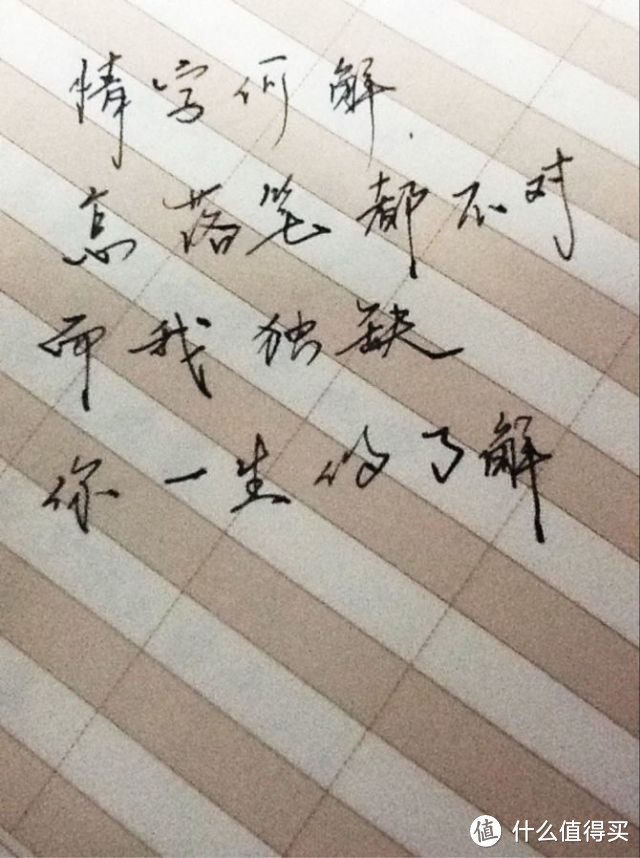 情字何解.
怎落笔都不对
而我独缺
你一生的了解
值 什么值得买